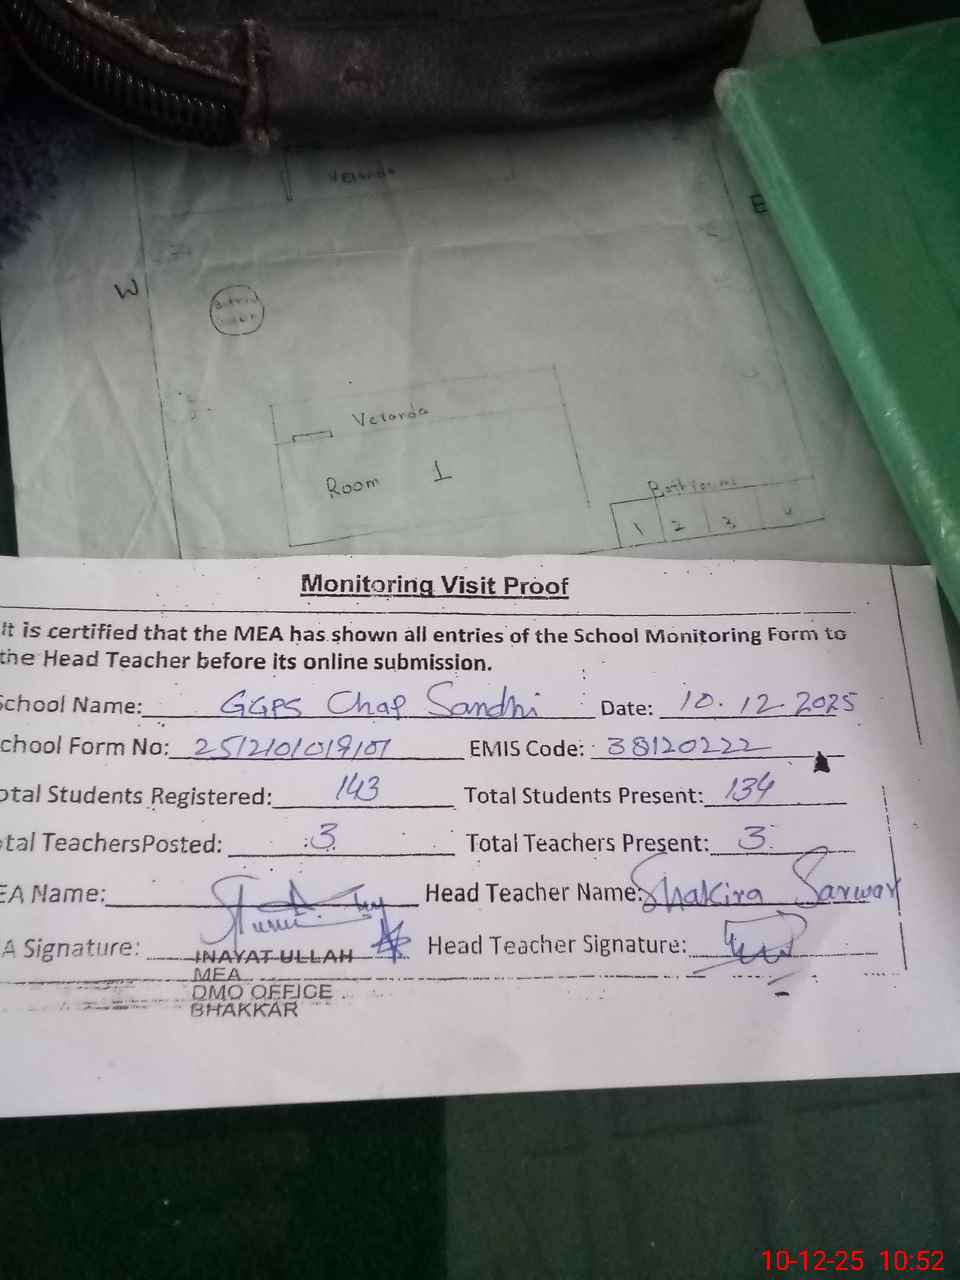 Veranda
E
W
Veranda
Room 1
Bathrooms
1 2 3 4
Monitoring Visit Proof
It is certified that the MEA has shown all entries of the School Monitoring Form to
the Head Teacher before its online submission.
School Name: GGPS Chap Sandhi Date: 10.12.2025
chool Form No: EMIS Code: 38120222
otal Students Registered: 143 Total Students Present: 134
tal TeachersPosted: 3 Total Teachers Present: 3
EA Name: Head Teacher Name: Shakira Sarwar
A Signature: Head Teacher Signature:
INAYAT ULLAH
MEA
DMO OFFICE
BHAKKAR
10-12-25 10:52